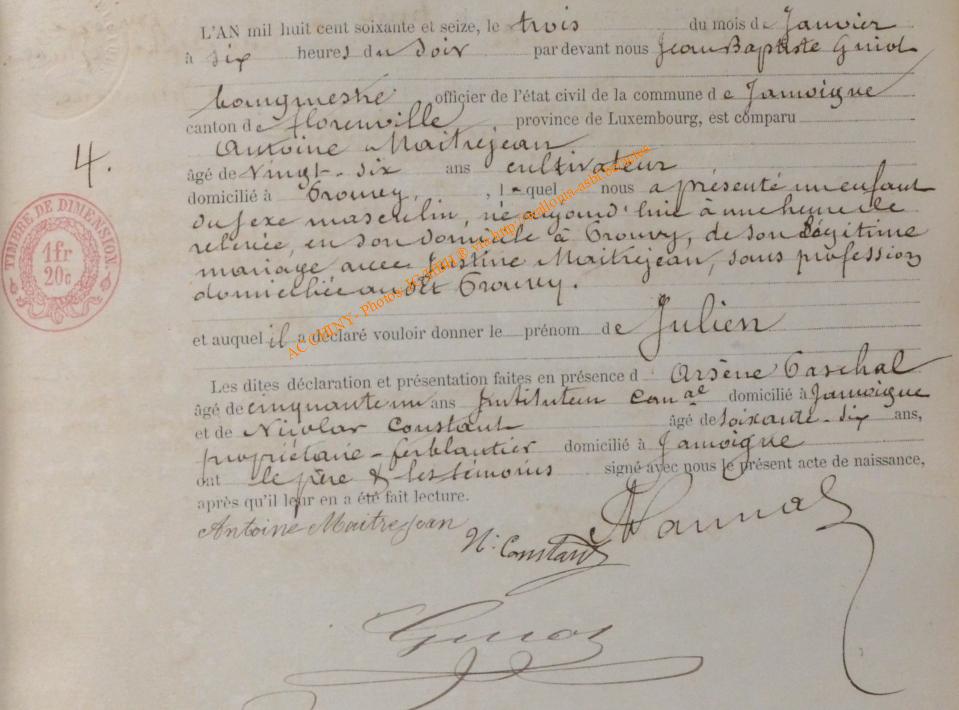 L'AN mil huit cent soixante et seize, le trois du mois de Janvier
à six heures du soir par devant nous Jean Baptiste Guiot
bourgmestre officier de l'état civil de la commune de Jamoigne
canton de florenville, province de Luxembourg, est comparu
Antoine Maitrejean
4.
âgé de vingt-six ans cultivateur
domicilié à Prouvy, lequel nous a présenté un enfant
du sexe masculin, né aujourd'hui à une heure de
relevée, en son domicile à Prouvy, de son légitime
mariage avec Justine Maitrejean, sans profession
domiciliée au dit Prouvy.
TIMBRE DE DIMENSION
1fr
20c
AC CHINY - Photos
et auquel il a déclaré vouloir donner le prénom de Julien
Les dites déclaration et présentation faites en présence d Arsène Paschal
âgé de cinquante un ans Instituteur com.al domicilié à Jamoigne
et de Nicolas Constant âgé de soixante-six ans,
propriétaire-ferblantier domicilié à Jamoigne
ont le père & les témoins signé avec nous le présent acte de naissance,
après qu'il leur en a été fait lecture.
Antoine Maitrejean
N. Constant
Guiot